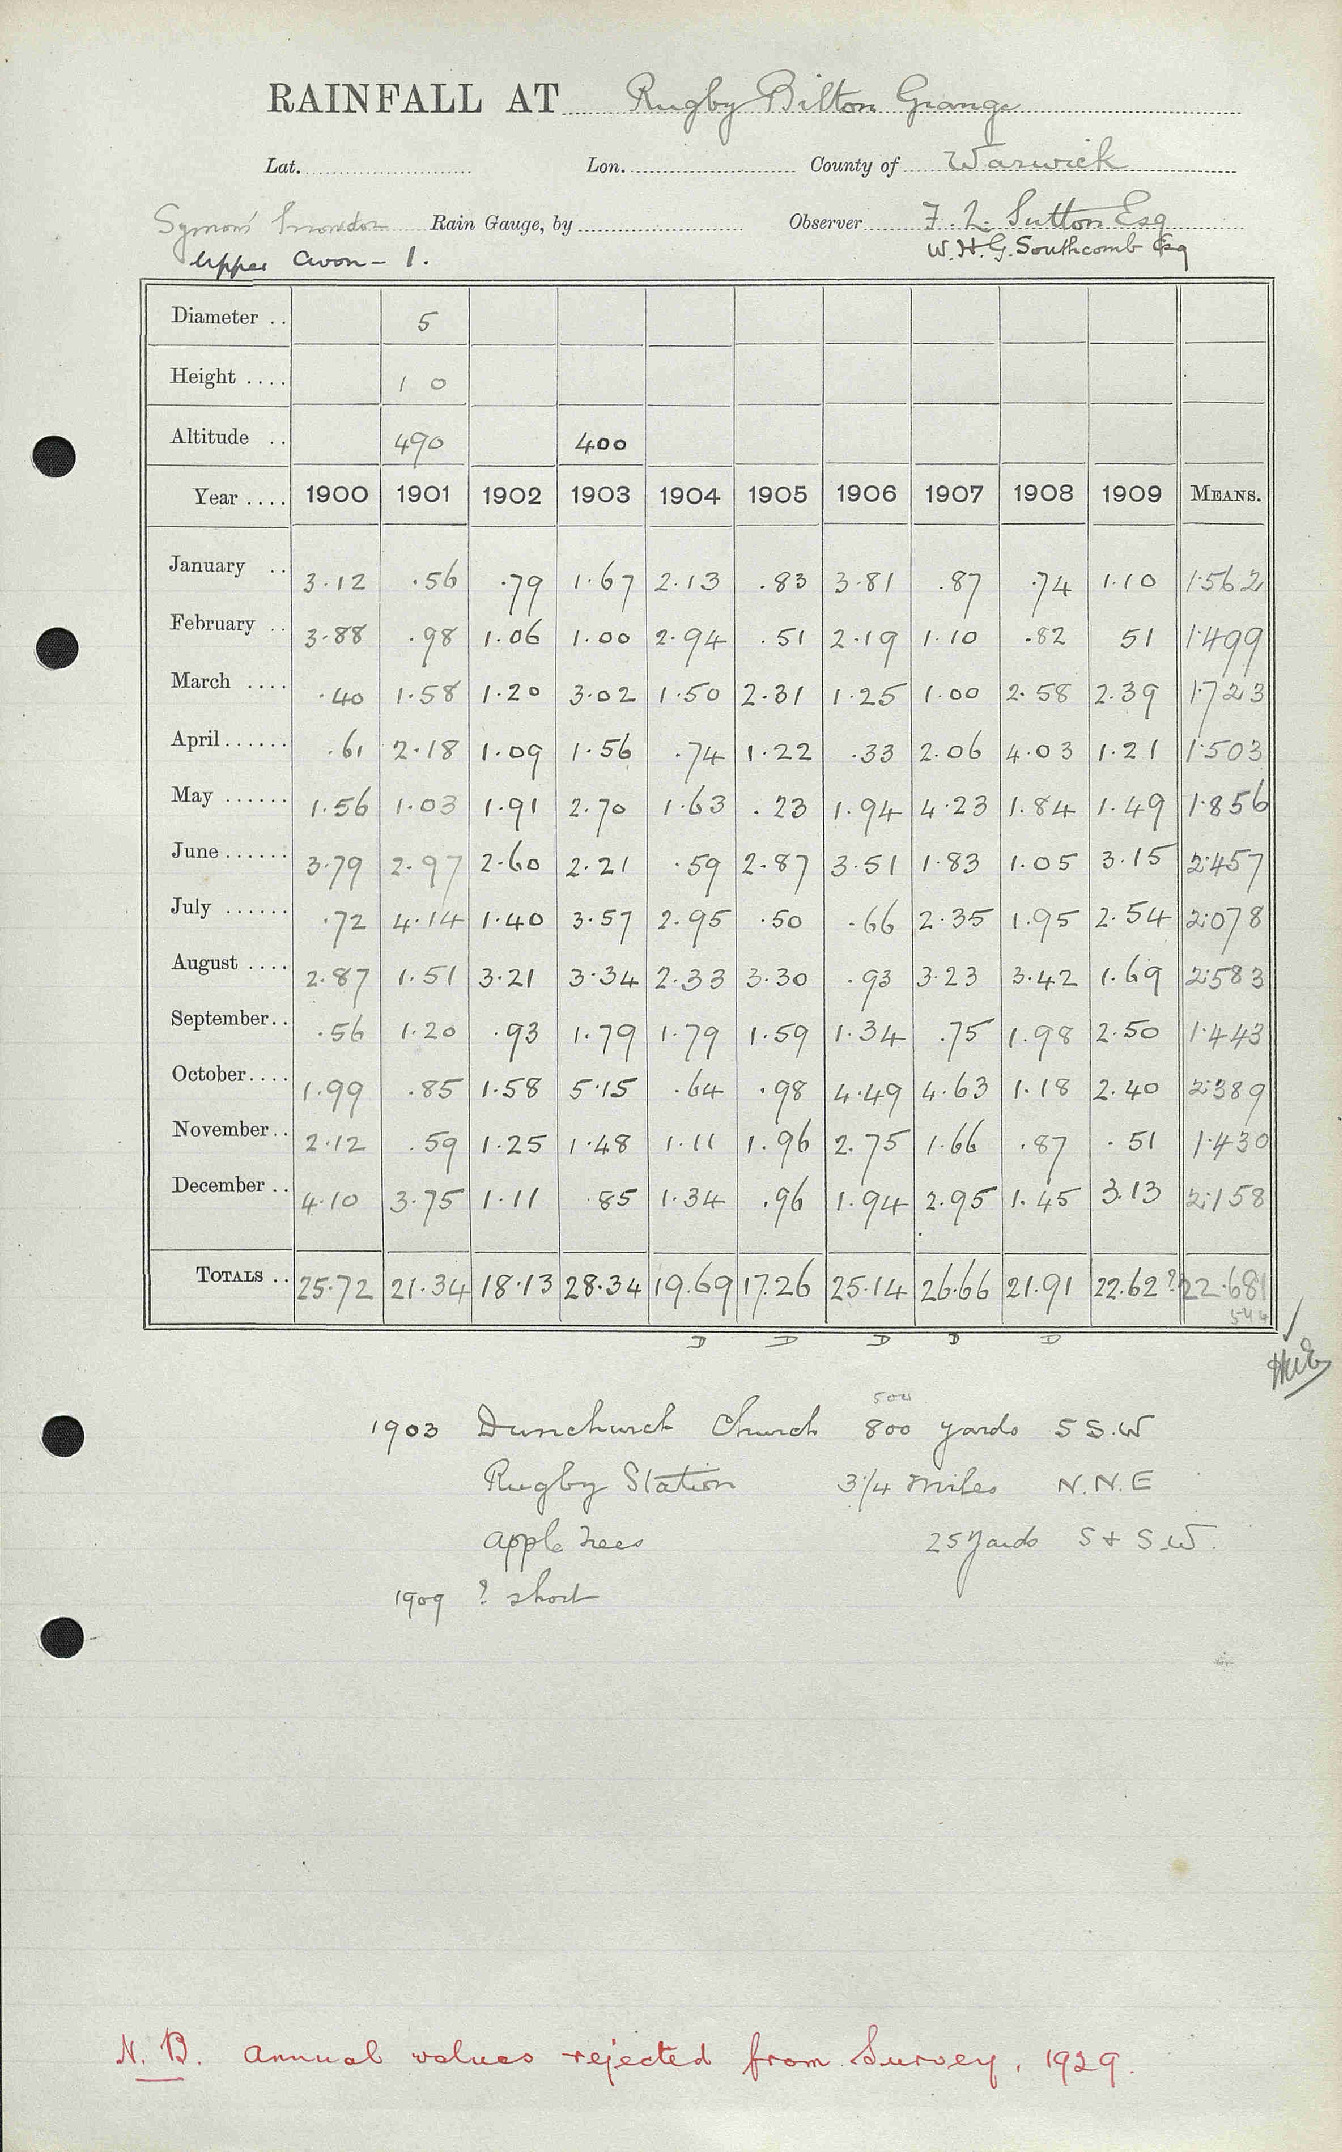 RAINFALL AT Rugby Bilton Grange
Lat. Lon. County of Warwick
Symons' Snowdon Rain Gauge, by Observer F. L. Sutton Esq
Upper Avon - 1. W. H. G. Southcomb Esq
Diameter .. 5
Height .... 1 0
Altitude .. 490 400
Year .... 1900 1901 1902 1903 1904 1905 1906 1907 1908 1909 MEANS.
January .. 3.12 .56 .79 1.67 2.13 .83 3.81 .87 .74 1.10 1.562
February .. 3.88 .98 1.06 1.00 2.94 .51 2.19 1.10 .82 51 1.499
March .... .40 1.58 1.20 3.02 1.50 2.31 1.25 1.00 2.58 2.39 1.723
April...... .61 2.18 1.09 1.56 .74 1.22 .33 2.06 4.03 1.21 1.503
May ...... 1.56 1.03 1.91 2.70 1.63 .23 1.94 4.23 1.84 1.49 1.856
June...... 3.79 2.97 2.60 2.21 .59 2.87 3.51 1.83 1.05 3.15 2.457
July ...... .72 4.14 1.40 3.57 2.95 .50 .66 2.35 1.95 2.54 2.078
August .... 2.87 1.51 3.21 3.34 2.33 3.30 .93 3.23 3.42 1.69 2.583
September.. .56 1.20 .93 1.79 1.79 1.59 1.34 .75 1.98 2.50 1.443
October.... 1.99 .85 1.58 5.15 .64 .98 4.49 4.63 1.18 2.40 2.389
November.. 2.12 .59 1.25 1.48 1.11 1.96 2.75 1.66 .87 .51 1.430
December .. 4.10 3.75 1.11 .85 1.34 .96 1.94 2.95 1.45 3.13 2.158
TOTALS .. 25.72 21.34 18.13 28.34 19.69 17.26 25.14 26.66 21.91 22.62? 22.681
D D D D D
500
1903 Dunchurch Church 800 yards S S.W
Rugby Station 3 1/4 miles N.N.E
apple trees 25 yards S + S.W.
1909 ? short
N.B. Annual values rejected from Survey, 1929.